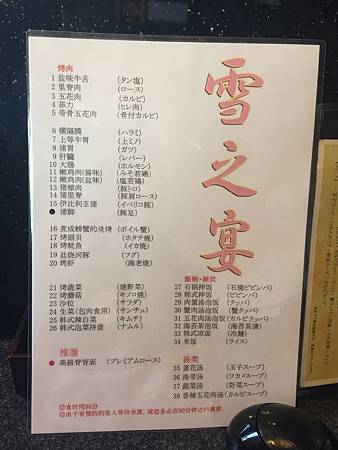 雪之宴
烤肉
1 盐味牛舌 (タン塩)
2 里脊肉 (ロース)
3 五花肉 (カルビ)
4 菲力 (ヒレ肉)
5 带骨五花肉 (骨付カルビ)
6 横隔膜 (ハラミ)
7 上等牛胃 (上ミノ)
8 猪胃 (ガツ)
9 肝臓 (レバー)
10 大肠 (ホルモン)
11 嫩鸡肉(酱味) (みそ若鶏)
12 嫩鸡肉(盐味) (塩若鶏)
13 猪颊肉 (豚トロ)
14 猪里脊 (豚肩ロース)
15 伊比利亚猪 (イベリコ豚)
● 猪脚 (豚足)
16 煮成螃蟹的烧烤 (ボイル蟹)
17 烤扇贝 (ホタテ焼)
18 烤鱿鱼 (イカ焼)
19 盐烧河豚 (フグ)
20 烤虾 (海老焼)
21 烤蔬菜 (焼野菜)
22 烤蘑菇 (キノコ焼)
23 沙拉 (サラダ)
24 生菜(包肉食用) (サンチュ)
25 韩式辣白菜 (キムチ)
26 韩式泡菜拼盘 (ナムル)
推選
● 高級脊背面 (プレミアムロース)
飯物・雑炊
27 石锅拌饭 (石焼ビビンバ)
28 韩式拌饭 (ビビンバ)
29 肉蛋汤泡饭 (クッパ)
30 蟹肉汤泡饭 (蟹クッパ)
31 五花肉汤泡饭 (カルビクッパ)
32 海苔茶泡饭 (海苔茶漬)
33 韩式凉面 (冷麺)
34 米饭 (ライス)
汤类
35 蛋花汤 (玉子スープ)
36 海带汤 (ワカメスープ)
37 蔬菜汤 (野菜スープ)
38 香辣五花肉汤 (カルビスープ)
◎食时间90分
◎由于有预约的客人等待坐席，请您务必在90分钟之内离席